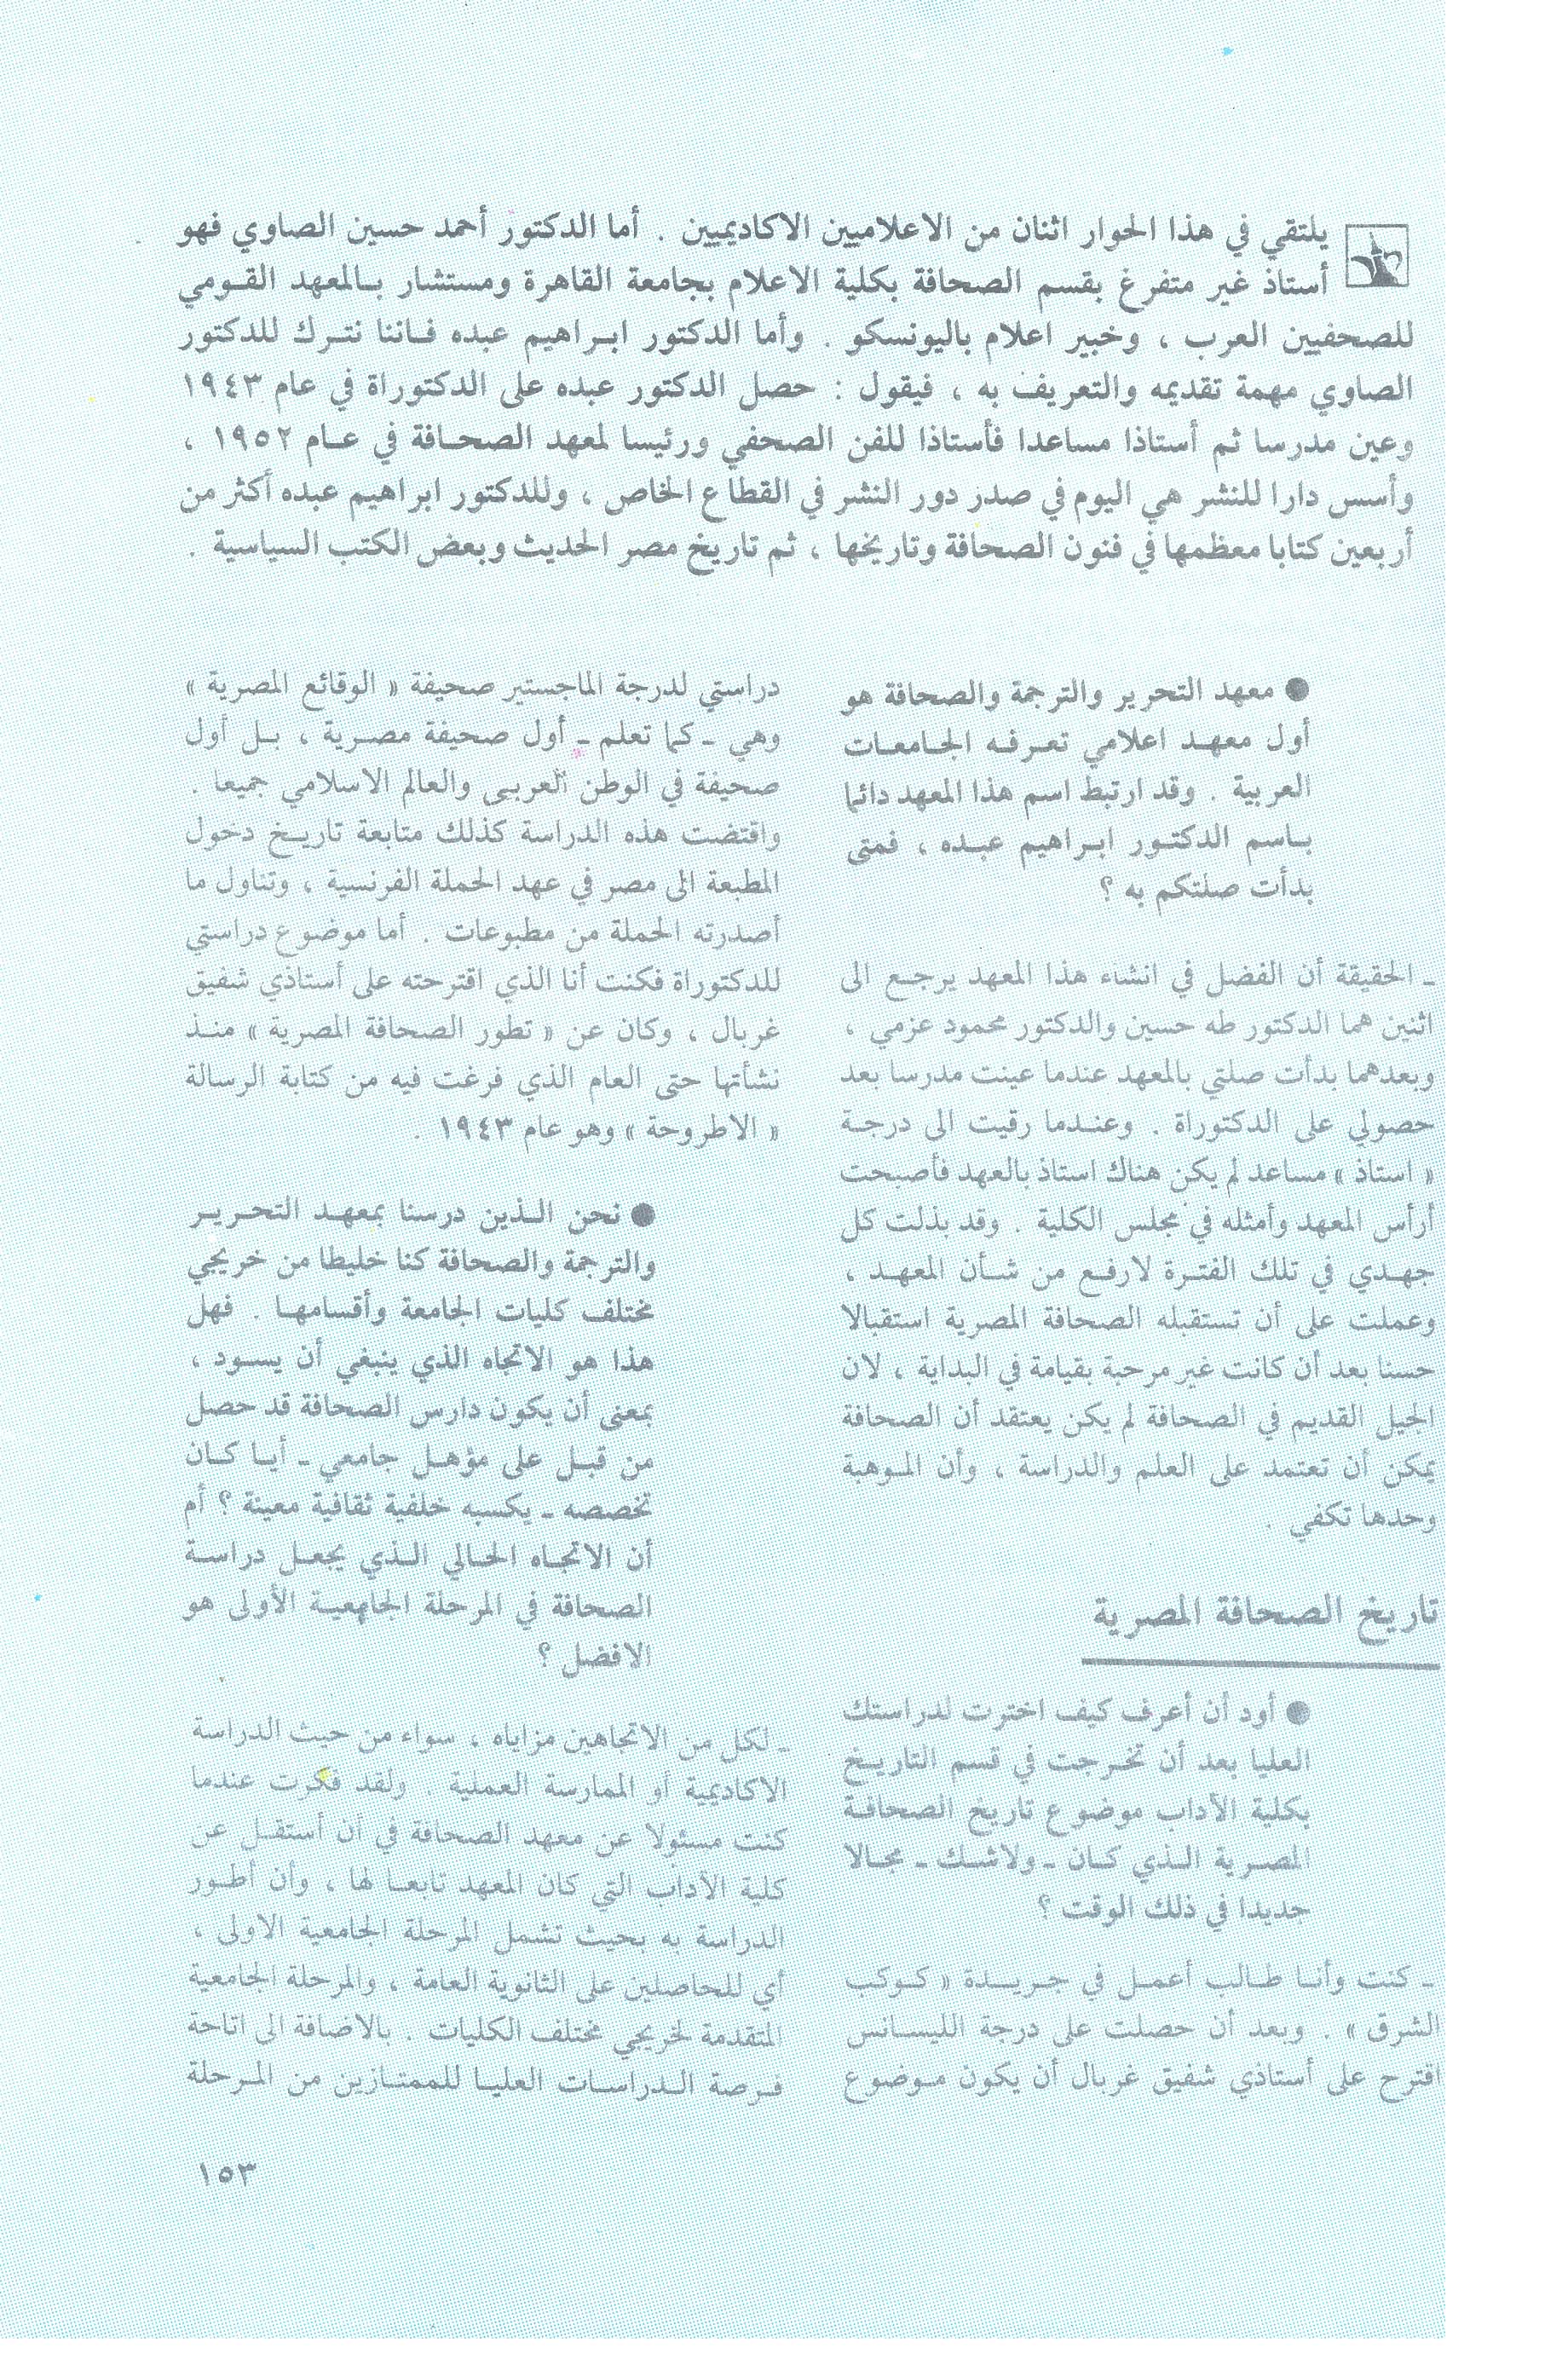 يلتقي في هذا الحوار اثنان من الاعلاميين الاكاديميين . أما الدكتور أحمد حسين الصاوي فهو
أستاذ غير متفرغ بقسم الصحافة بكلية الاعلام بجامعة القاهرة ومستشار بـالمعهد القـومي
للصحفيين العرب ، وخبير اعلام باليونسكو . وأما الدكتور ابـراهيم عبده فـاننا نتـرك للدكتور
الصاوي مهمة تقديمه والتعريف به ، فيقول : حصل الدكتور عبده على الدكتوراة في عام ١٩٤٣
وعين مدرسا ثم أستاذا مساعدا فأستاذا للفن الصحفي ورئيسا لمعهد الصحـافة في عـام ١٩٥٢ ،
وأسس دارا للنشر هي اليوم في صدر دور النشر في القطاع الخاص ، وللدكتور ابراهيم عبده أكثر من
أربعين كتابا معظمها في فنون الصحافة وتاريخها ، ثم تاريخ مصر الحديث وبعض الكتب السياسية .
● معهد التحرير والترجمة والصحافة هو
أول معهـد اعلامي تعـرفـه الجـامعـات
العربية . وقد ارتبط اسم هذا المعهد دائما
بـاسم الدكتـور ابـراهيم عبـده ، فمتى
بدأت صلتكم به ؟
ـ الحقيقة أن الفضل في انشاء هذا المعهد يرجـع الى
اثنين هما الدكتور طه حسين والدكتور محمود عزمي ،
وبعدهما بدأت صلتي بالمعهد عندما عينت مدرسا بعد
حصولي على الدكتوراة . وعنـدما رقيت الى درجـة
« استاذ » مساعد لم يكن هناك استاذ بالعهد فأصبحت
أرأس المعهد وأمثله في مجلس الكلية . وقد بذلت كل
جهـدي في تلك الفتـرة لارفـع من شـأن المعهـد ،
وعملت على أن تستقبله الصحافة المصرية استقبالا
حسنا بعد أن كانت غير مرحبة بقيامة في البداية ، لان
الجيل القديم في الصحافة لم يكن يعتقد أن الصحافة
يمكن أن تعتمد على العلم والدراسة ، وأن المـوهبة
وحدها تكفي .
تاريخ الصحافة المصرية
● أود أن أعرف كيف اخترت لدراستك
العليا بعد أن تخـرجت في قسم التاريـخ
بكلية الآداب موضوع تاريخ الصحافـة
المصـرية الـذي كـان ـ ولاشـك ـ مجـالا
جديدا في ذلك الوقت ؟
ـ كنت وأنـا طـالب أعمـل في جـريـدة « كـوكب
الشرق » . وبعد أن حصلت على درجة الليسـانس
اقترح على أستاذي شفيق غربال أن يكون مـوضوع
دراستي لدرجة الماجستير صحيفة « الوقائع المصرية »
وهي ـ كما تعلم ـ أول صحيفة مصـرية ، بـل أول
صحيفة في الوطن العربى والعالم الاسلامي جميعا .
واقتضت هذه الدراسة كذلك متابعة تاريـخ دخول
المطبعة الى مصر في عهد الحملة الفرنسية ، وتناول ما
أصدرته الحملة من مطبوعات . أما موضوع دراستي
للدكتوراة فكنت أنا الذي اقترحته على أستاذي شفيق
غربال ، وكان عن « تطور الصحافة المصرية » منـذ
نشأتها حتى العام الذي فرغت فيه من كتابة الرسالة
« الاطروحة » وهو عام ١٩٤٣ .
● نحن الـذين درسنا بمعهـد التحـريـر
والترجمة والصحافة كنا خليطا من خريجي
مختلف كليات الجامعة وأقسامهـا . فهل
هذا هو الاتجاه الذي ينبغي أن يسـود ،
بمعنى أن يكون دارس الصحافة قد حصل
من قبـل على مؤهـل جامعي ـ أيـا كـان
تخصصه ـ يكسبه خلفية ثقافية معينة ؟ أم
أن الاتجـاه الحـالي الـذي يجعـل دراسـة
الصحافة في المرحلة الجامعيـة الأولى هو
الافضل ؟
ـ لكل من الاتجاهين مزاياه ، سواء من حيث الدراسة
الاكاديمية أو الممارسة العملية . ولقد فكرت عندما
كنت مسئولا عن معهد الصحافة في أن أستقـل عن
كلية الآداب التي كان المعهد تابعـا لها ، وأن أطـور
الدراسة به بحيث تشمل المرحلة الجامعية الاولى ،
أي للحاصلين على الثانوية العامة ، والمرحلة الجامعية
المتقدمة لخريجي مختلف الكليات . بالاضافة الى اتاحة
فـرصة الـدراسـات العليـا للممتـازين من المـرحلة
١٥٣